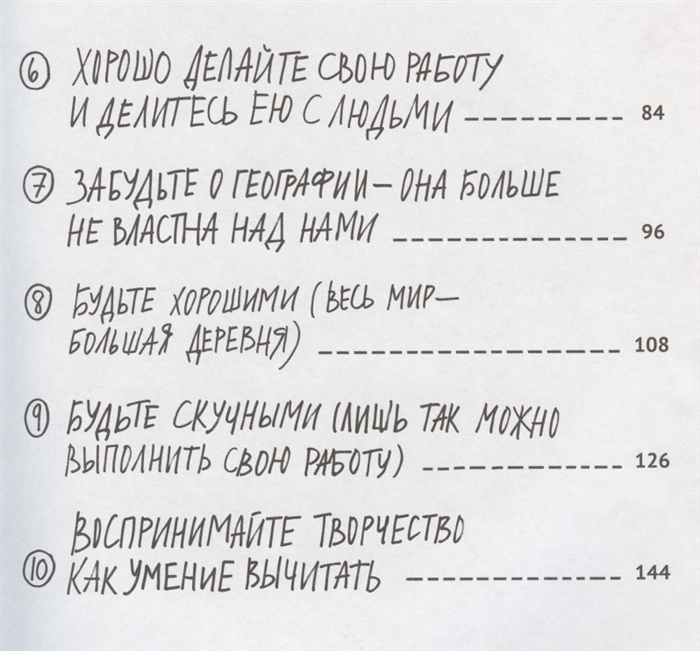 ⑥ ХОРОШО ДЕЛАЙТЕ СВОЮ РАБОТУ
И ДЕЛИТЕСЬ ЕЮ С ЛЮДЬМИ 84
⑦ ЗАБУДЬТЕ О ГЕОГРАФИИ — ОНА БОЛЬШЕ
НЕ ВЛАСТНА НАД НАМИ 96
⑧ БУДЬТЕ ХОРОШИМИ (ВЕСЬ МИР —
БОЛЬШАЯ ДЕРЕВНЯ) 108
⑨ БУДЬТЕ СКУЧНЫМИ (ЛИШЬ ТАК МОЖНО
ВЫПОЛНИТЬ СВОЮ РАБОТУ) 126
ВОСПРИНИМАЙТЕ ТВОРЧЕСТВО
⑩ КАК УМЕНИЕ ВЫЧИТАТЬ 144